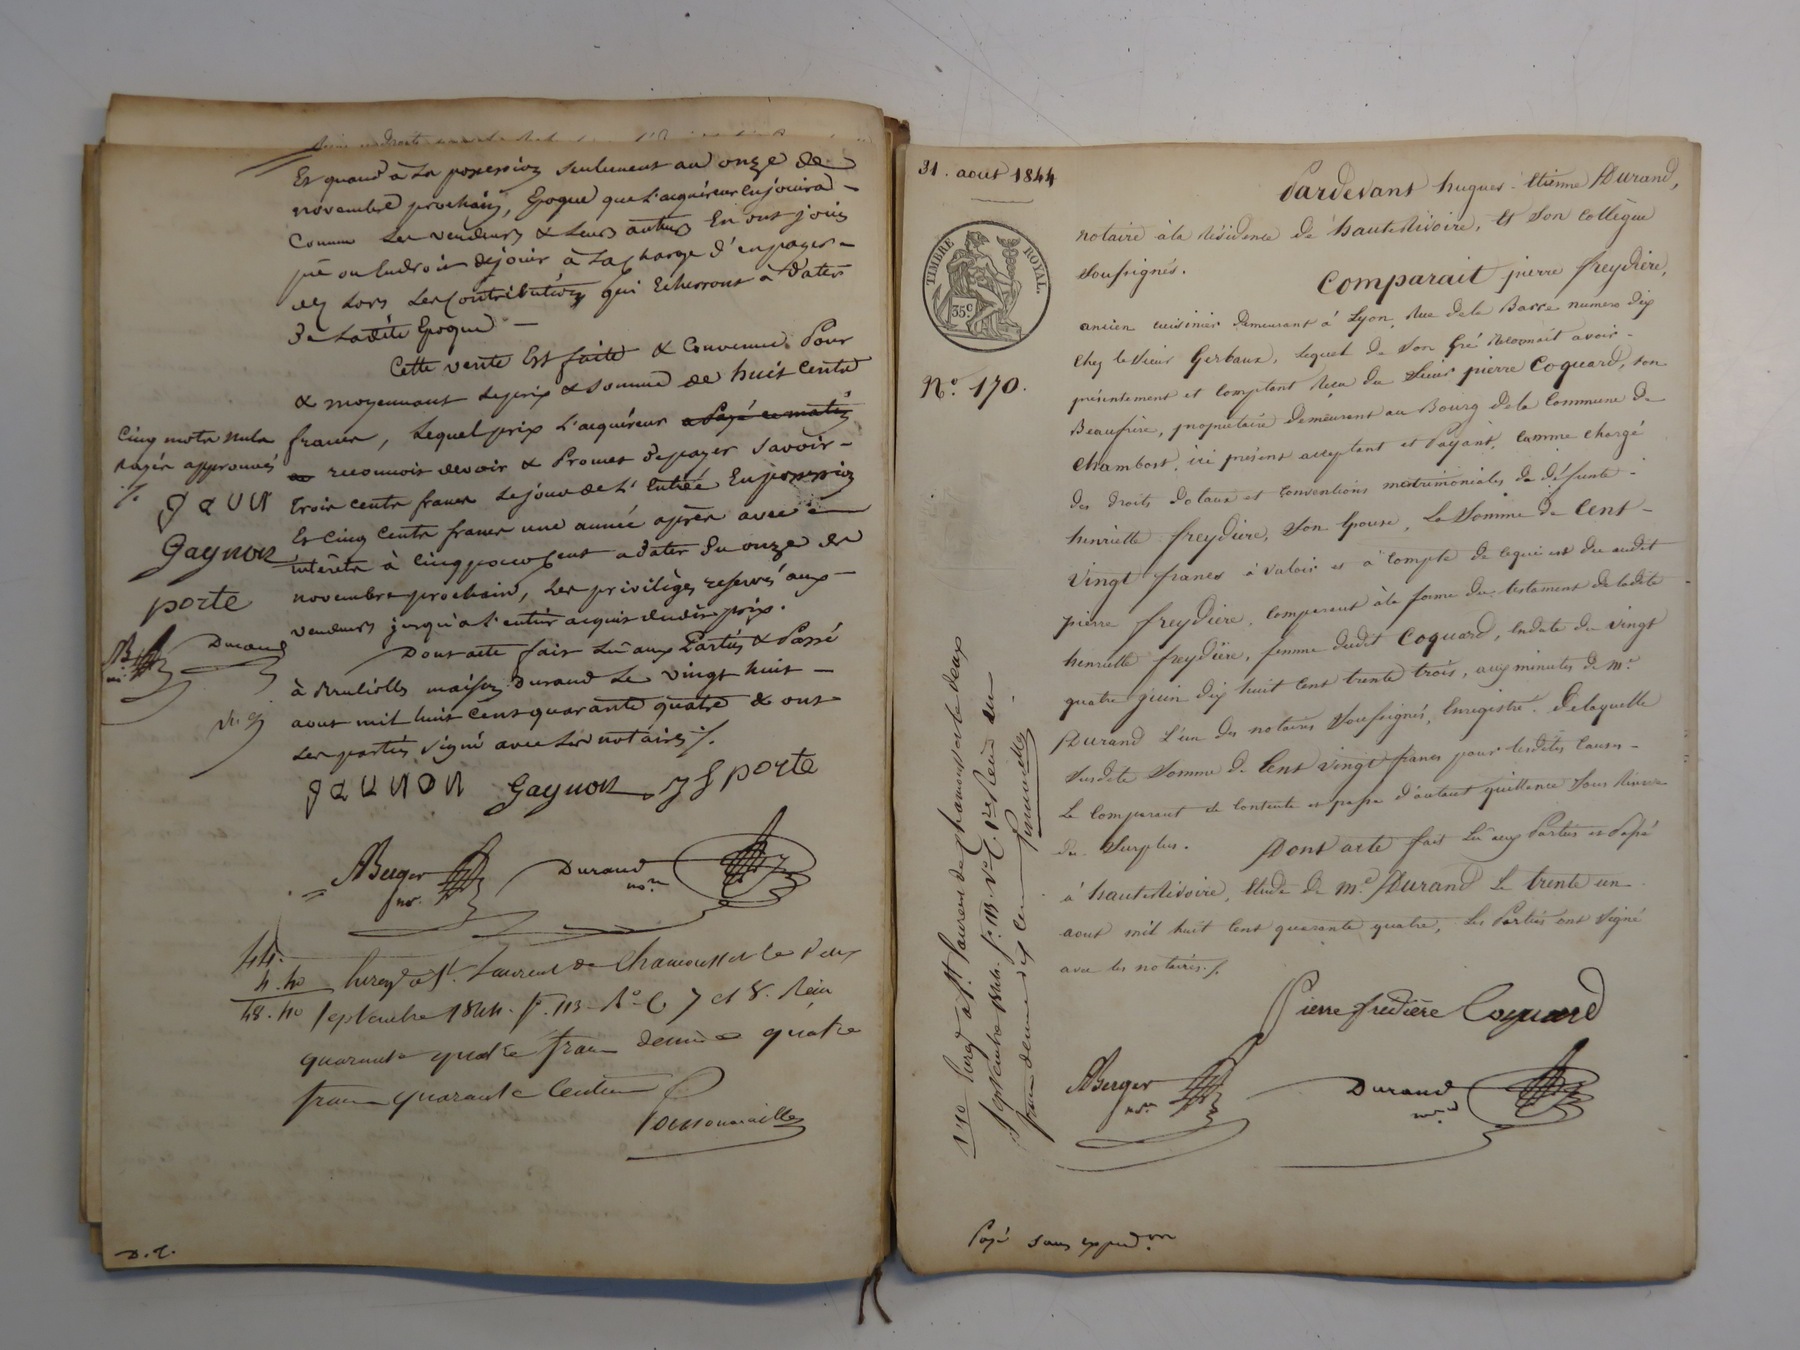 Et quand à la possession seulement au onze de
novembre prochain, époque que l'acquéreur en jouira
comme les vendeurs & leurs auteurs en ont joui
pu ou eu droit de jouir à la charge d'en payer
dès lors les contributions qui écherront à dater
de ladite époque
Cette vente est faite & convenue pour
& moyennant le prix & somme de huit cents
francs, lequel prix l'acquéreur a payé ce matin
reconnoit devoir & promet de payer savoir
trois cents francs le jour de l'entrée en possession
Et cinq cents francs une année après avec
intérêts à cinq pour cent a dater du onze de
novembre prochain, les privilèges reservés aux
vendeurs jusqu'a l'entier acquis dudit prix.
Dont acte fait lu aux parties & passé
à Brullioles maison Durand le vingt huit
aout mil huit cent quarante quatre & ont
les parties signé avec les notaires ./.
Gagnon porte
ABerger Durand
nore
Cinq mots nuls
rayés approuvés
./.
Gagnon
porte
Durand
44.
4.40
48.40
Enregé à St Laurent de Chamousset le deux
septembre 1844. fo 113 Ro C 7 et 8. Reçu
quarante quatre francs decime quatre
francs quarante centimes
D. T.
31. aout 1844
TIMBRE ROYAL.
35 c.
No. 170.
Pardevant hugues-étienne Durand,
notaire à la résidence de hauterivoire, et son collègue
soussignés.
Comparait pierre freydière,
ancien cuisinier demeurant à Lyon, rue de la Barre numero dix
chez le sieur Gerbaux, lequel de son gré reconnait avoir
présentement et comptant reçu du sieur pierre Coquard, son
Beaufrère, propriétaire demeurant au Bourg de la commune de
Chambost, ici présent acceptant et payant, comme chargé
des droits dotaux et conventions matrimoniales de défunte
henriette freydière, son épouse, la somme de Cent
vingt francs à valoir et à compte de ce qui est du audit
pierre freydière, comparant à la forme du testament de ladite
henriette freydière, femme dudit Coquard, en date du vingt
quatre juin dix huit cent trente trois, aux minutes de me.
Durand l'un des notaires soussignés, enregistré. De laquelle
susdite somme de cent vingt francs pour lesdites causes
le comparant se contente et passe d'autant quittance sous réserve
du surplus.
Dont acte fait lu aux parties et passé
à hauterivoire, étude de me. Durand le trente un
aout mil huit cent quarante quatre, les parties ont signé
avec les notaires ./.
Pierre fredière Coquard
ABerger Durand
nore nore
Enregé à St Laurent de Chamousset le deux
septembre 1844. fo 113. Vo C. 1re Reçu
franc decime dix centimes
Payé sans expedon